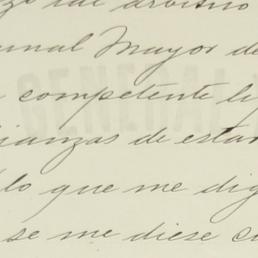 arbitrio
unal Mayor de
competente li
ianzas de esta
lo que me dig
se me diese co